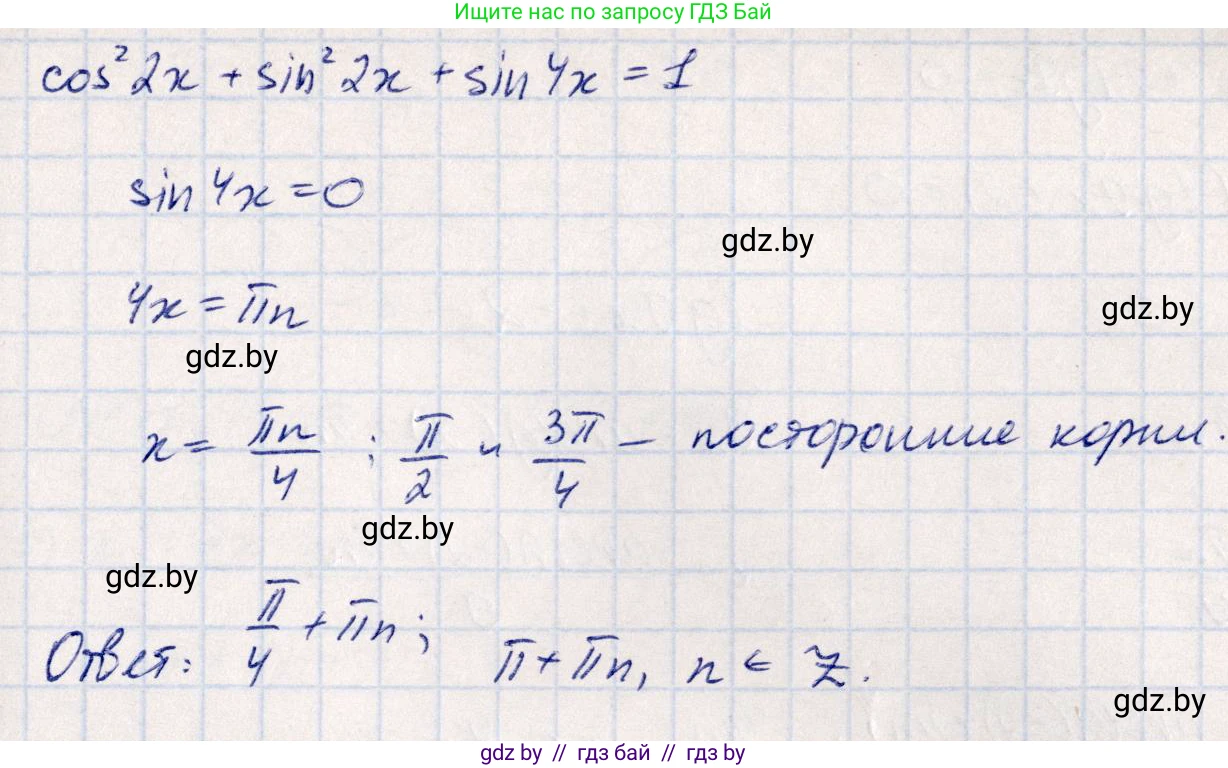 Ищите нас по запросу ГДЗ Бай
cos² 2x + sin² 2x + sin 4x = 1
sin 4x = 0
gdz.by
4x = πn
gdz.by
gdz.by
x = πn/4 ; π/2 и 3π/4 — посторонние корни.
gdz.by
gdz.by
Ответ: π/4 + πn; π + πn, n ∈ Z.
gdz.by
gdz.by // гдз бай // гдз by